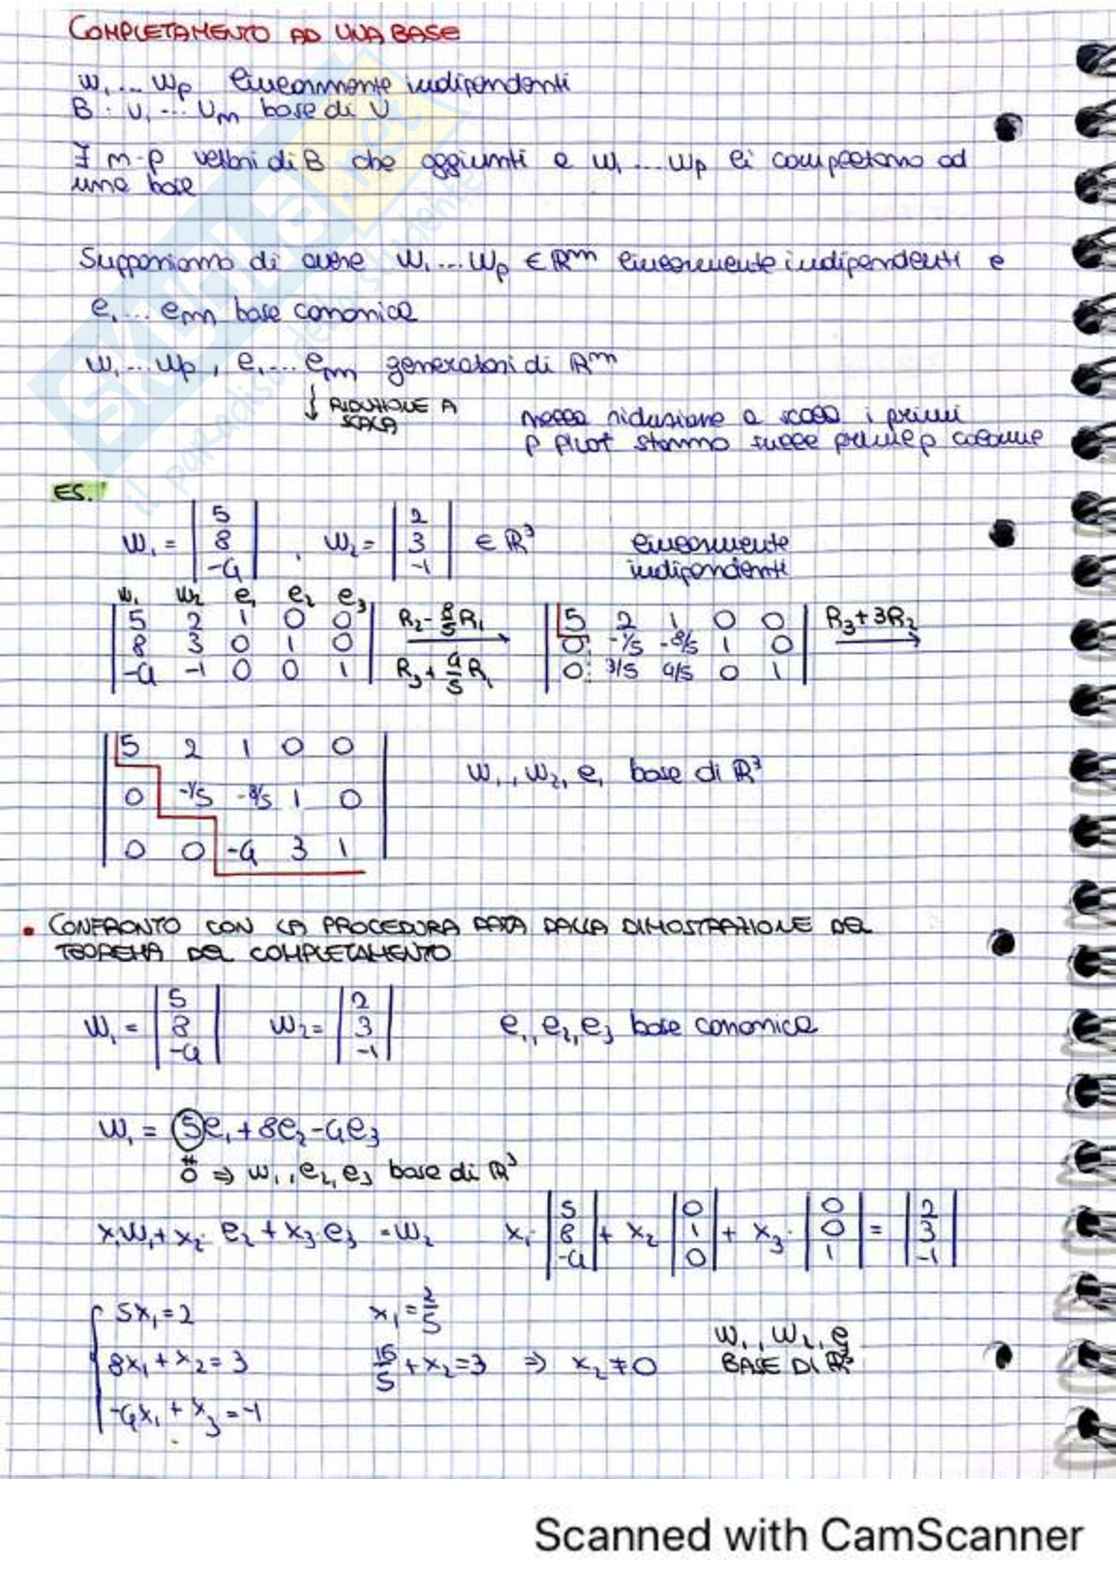 COMPLETAMENTO AD UNA BASE
w₁ ... wₚ linearmente indipendenti
B : v₁ ... vₘ base di V
∃ m-p vettori di B che aggiunti a w₁ ... wₚ li completano ad
una base
Supponiamo di avere w₁ ... wₚ ∈ ℝᵐ linearmente indipendenti e
e₁ ... eₘ base canonica
w₁ ... wₚ , e₁ ... eₘ generatori di ℝᵐ
↓ RIDUZIONE A
SCALA
nella riduzione a scala i primi
p pivot stanno sulle prime p colonne
ES.
w₁ = |5 8 -4| , w₂ = |2 3 -1| ∈ ℝ³ linearmente
indipendenti
w₁ w₂ e₁ e₂ e₃
5 2 1 0 0 R₂-8/5R₁ 5 2 1 0 0 R₃+3R₂
8 3 0 1 0 → 0 -1/5 -8/5 1 0 →
-4 -1 0 0 1 R₃+4/5R₁ 0 3/5 4/5 0 1
5 2 1 0 0
0 -1/5 -8/5 1 0
0 0 -4 3 1
w₁, w₂, e₁ base di ℝ³
• CONFRONTO CON LA PROCEDURA DATA DALLA DIMOSTRAZIONE DEL
TEOREMA DEL COMPLETAMENTO
w₁ = |5 8 -4| w₂ = |2 3 -1| e₁, e₂, e₃ base canonica
w₁ = 5e₁ + 8e₂ - 4e₃
≠
0 ⇒ w₁, e₂, e₃ base di ℝ³
x₁w₁ + x₂· e₂ + x₃·e₃ = w₂ x₁·|5 8 -4| + x₂|0 1 0| + x₃·|0 0 1| = |2 3 -1|
5x₁ = 2 x₁ = 2/5
8x₁ + x₂ = 3 16/5 + x₂ = 3 ⇒ x₂ ≠ 0
-4x₁ + x₃ = -1
w₁, w₂, e
BASE DI ℝ³
Scanned with CamScanner